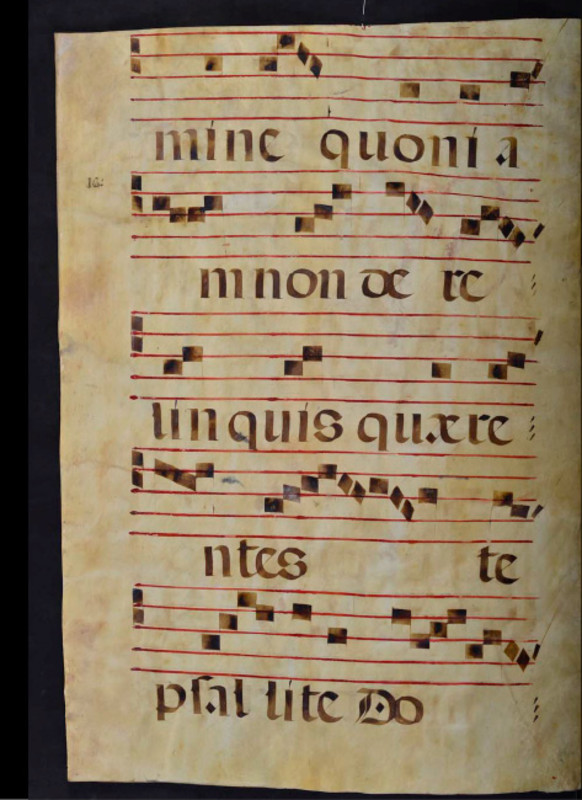 mine quoni a
m non de re
lin quis quære
ntes te
psal lite Do